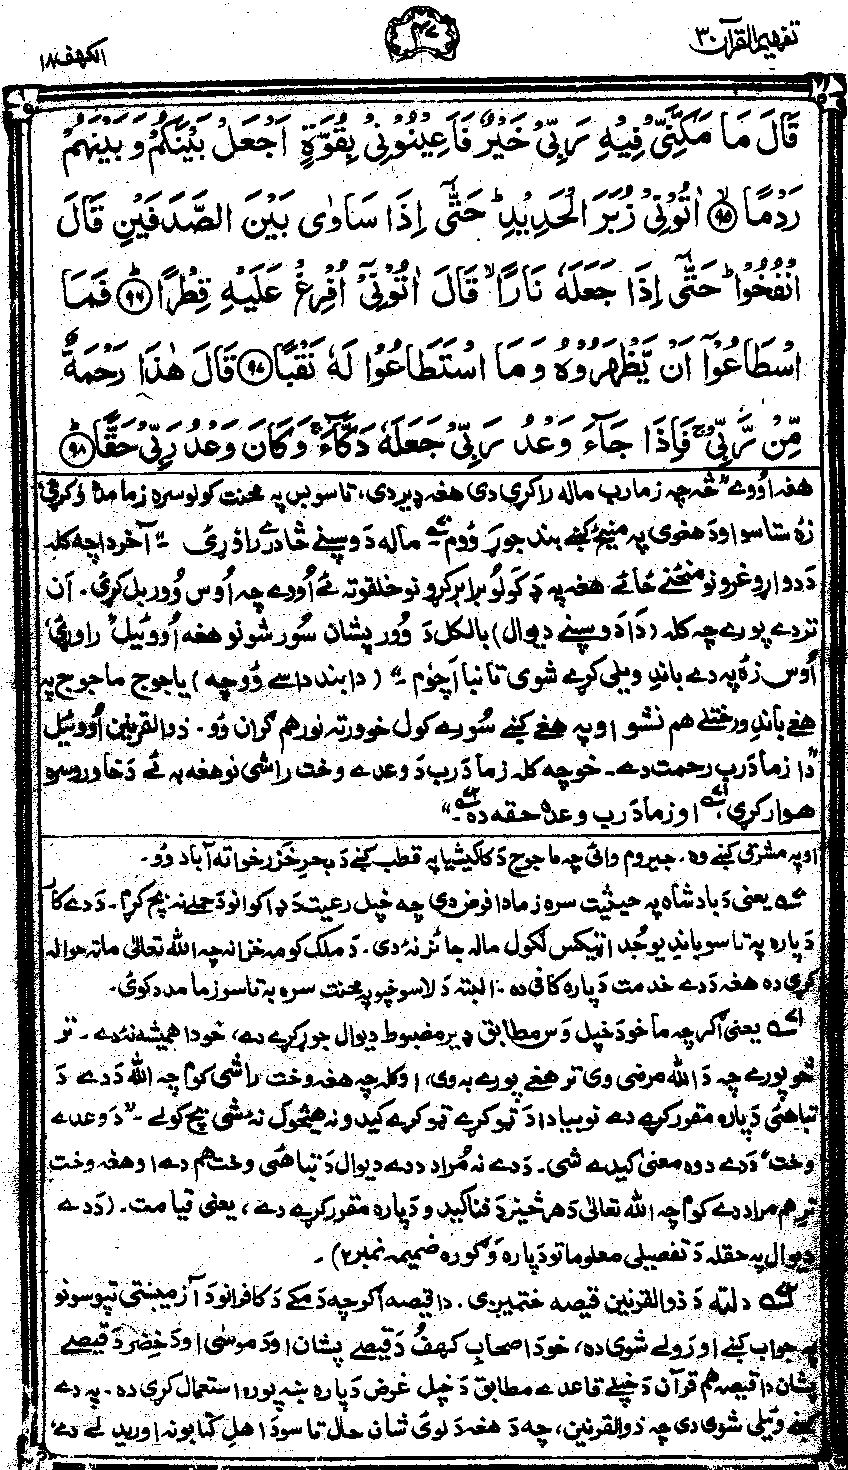 تفهیم القرآن ۳۰
۳۷
الکهف ۱۸
قَالَ مَا مَكَّنِّیْ فِیْهِ رَبِّیْ خَیْرٌ فَاَعِیْنُوْنِیْ بِقُوَّةٍ اَجْعَلْ بَیْنَكُمْ وَ بَیْنَهُمْ
رَدْمًا ﴿۹۵﴾ اٰتُوْنِیْ زُبَرَ الْحَدِیْدِ ؕ حَتّٰۤی اِذَا سَاوٰی بَیْنَ الصَّدَفَیْنِ قَالَ
انْفُخُوْا ؕ حَتّٰۤی اِذَا جَعَلَهٗ نَارًا ۙ قَالَ اٰتُوْنِیْۤ اُفْرِغْ عَلَیْهِ قِطْرًا ﴿۹۶﴾ فَمَا
اسْطَاعُوْۤا اَنْ یَّظْهَرُوْهُ وَ مَا اسْتَطَاعُوْا لَهٗ نَقْبًا ﴿۹۷﴾ قَالَ هٰذَا رَحْمَةٌ
مِّنْ رَّبِّیْ ۚ فَاِذَا جَآءَ وَعْدُ رَبِّیْ جَعَلَهٗ دَكَّآءَ ۚ وَكَانَ وَعْدُ رَبِّیْ حَقًّا ﴿۹۸﴾
هغه اووے "څه چه زما رب ماله راکړی دی هغه ډیر دی، تاسو بس په محنت کولو سره زما مدد وکړئ
زۀ ستاسو او د هغوی په مینځ کښے بند جوړ ووم ماله د وسپنے څادرے راوړئ ۔" آخر دا چه کله
د دواړو غرونو مینځنے ځائے هغه په ډکولو برابر کړو نو خلقو ته ئے اووے چه اُوس وُور بل کړئ۔ اَن
تر دے پورے چه کله (دا د وسپنے دیوال) بالکل د وُور پشان سُور شو نو هغه اُووئیل "راوړئ،
اُوس زۀ په دے باندِ ویلی کړے شوی تانبا اَچوم ۔" (دا بند داسے وُو چه) یاجوج ماجوج په
هغے باندِ ورختلے هم نشو او په هغے کښے سُورے کول خو ورته نور هم ګران وُو۔ ذوالقرنین اُووئیل
"دا زما د رب رحمت دے۔ خو چه کله زما د رب د وعدے وخت راشی نو هغه به ئے د خاورو سره
هوار کړی، او زما د رب وعده حقه ده ۔"
او په مشرق کښے وه۔ جیروم وائی چه ماجوج د کاکیشیا په قطب کښے د بحرِ خزر خوا ته آباد وُو۔
یعنی د بادشاه په حیثیت سره زما دا فرض دی چه خپل رعیت د ډاکوانو د حملے نه بچ کړم۔ د دے کار
د پاره په تاسو باندِ یو جُدا ټیکس لګول ماله جائز نۀ دی۔ د ملک کومه خزانه چه الله تعالی ماته حواله
کړی ده هغه د دے خدمت د پاره کافی ده۔ البته د لاسو خپو په محنت سره به تاسو زما مدد کوئ۔
یعنی اګرچه ما خو د خپل وَس مطابق ډیر مضبوط دیوال جوړ کړے دے، خو دا همیشه نۀ دے۔ تر
څو پورے چه د الله مرضی وی تر هغے پورے به وی، او کله چه هغه وخت راشی کوم چه الله د دے د
تباهئ د پاره مقرر کړے دے نو بیا دا د ټوکړے ټوکړے کیدو نه هیڅوک نۀ شی بچ کولے ۔ "د وعدے
وخت" د دے دوه معنی کیدے شی۔ د دے نه مُراد د دے دیوال د تباهئ وخت هم دے او هغه وخت
ترے هم مراد دے کوم چه الله تعالی د هر څیز د فنا کیدو د پاره مقرر کړے دے، یعنی قیامت۔ (د دے
دیوال په حقله د تفصیلی معلوماتو د پاره وګوره ضمیمه نمبر ۲)۔
دلته د ذوالقرنین قیصه ختمیږی۔ دا قیصه اګرچه د مکے د کافرانو د آزمیښتی تپوسونو
په جواب کښے اورولے شوی ده، خو د اصحابِ کهف د قیصے پشان او د موسٰی او د خِضر د قیصے
پشان دا قیصه هم قرآن د خپلے قاعدے مطابق د خپل غرض د پاره ښه پوره استعمال کړی ده۔ په دے
کښے وئیلی شوی دی چه ذوالقرنین، چه د هغه د لوئ شان حال تاسو د اهلِ کتابو نه اوریدلے دے،